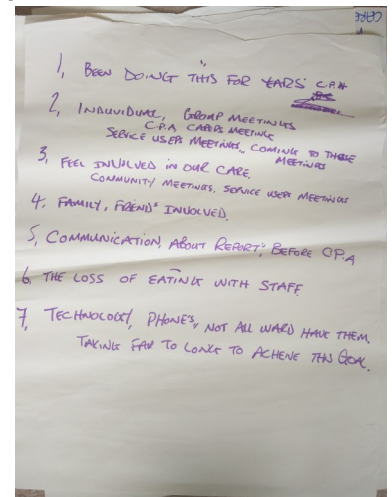 CARE
1, BEEN DOING THIS FOR YEARS" C.P.A
2, INDUVIDUAL, GROUP MEETINGS
C.P.A CARERS MEETING
SERVICE USERS MEETINGS, COMING TO THESE
MEETINGS
3, FEEL INVOLVED IN OUR CARE.
COMMUNITY MEETINGS, SERVICE USERS MEETINGS
4, FAMILY, FRIEND'S INVOLVED.
5, COMMUNICATION, ABOUT REPORT'S, BEFORE C.P.A
6, THE LOSS OF EATING WITH STAFF
7, TECHNOLOGY, PHONE'S, NOT ALL WARD HAVE THEM,
TAKING FAR TO LONG TO ACHEVE THIS GOAL.